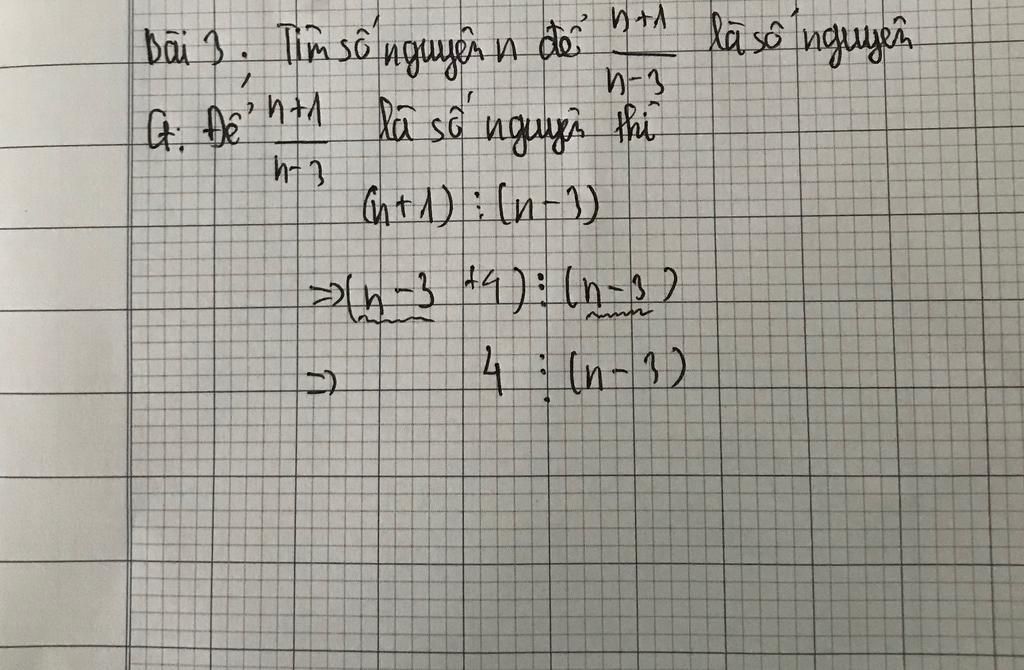 Bài 3. Tìm số nguyên n để n+1/n-3 là số nguyên
G: Để n+1/n-3 là số nguyên thì
(n+1) ⋮ (n-3)
=> (n-3 +4) ⋮ (n-3)
=> 4 ⋮ (n-3)